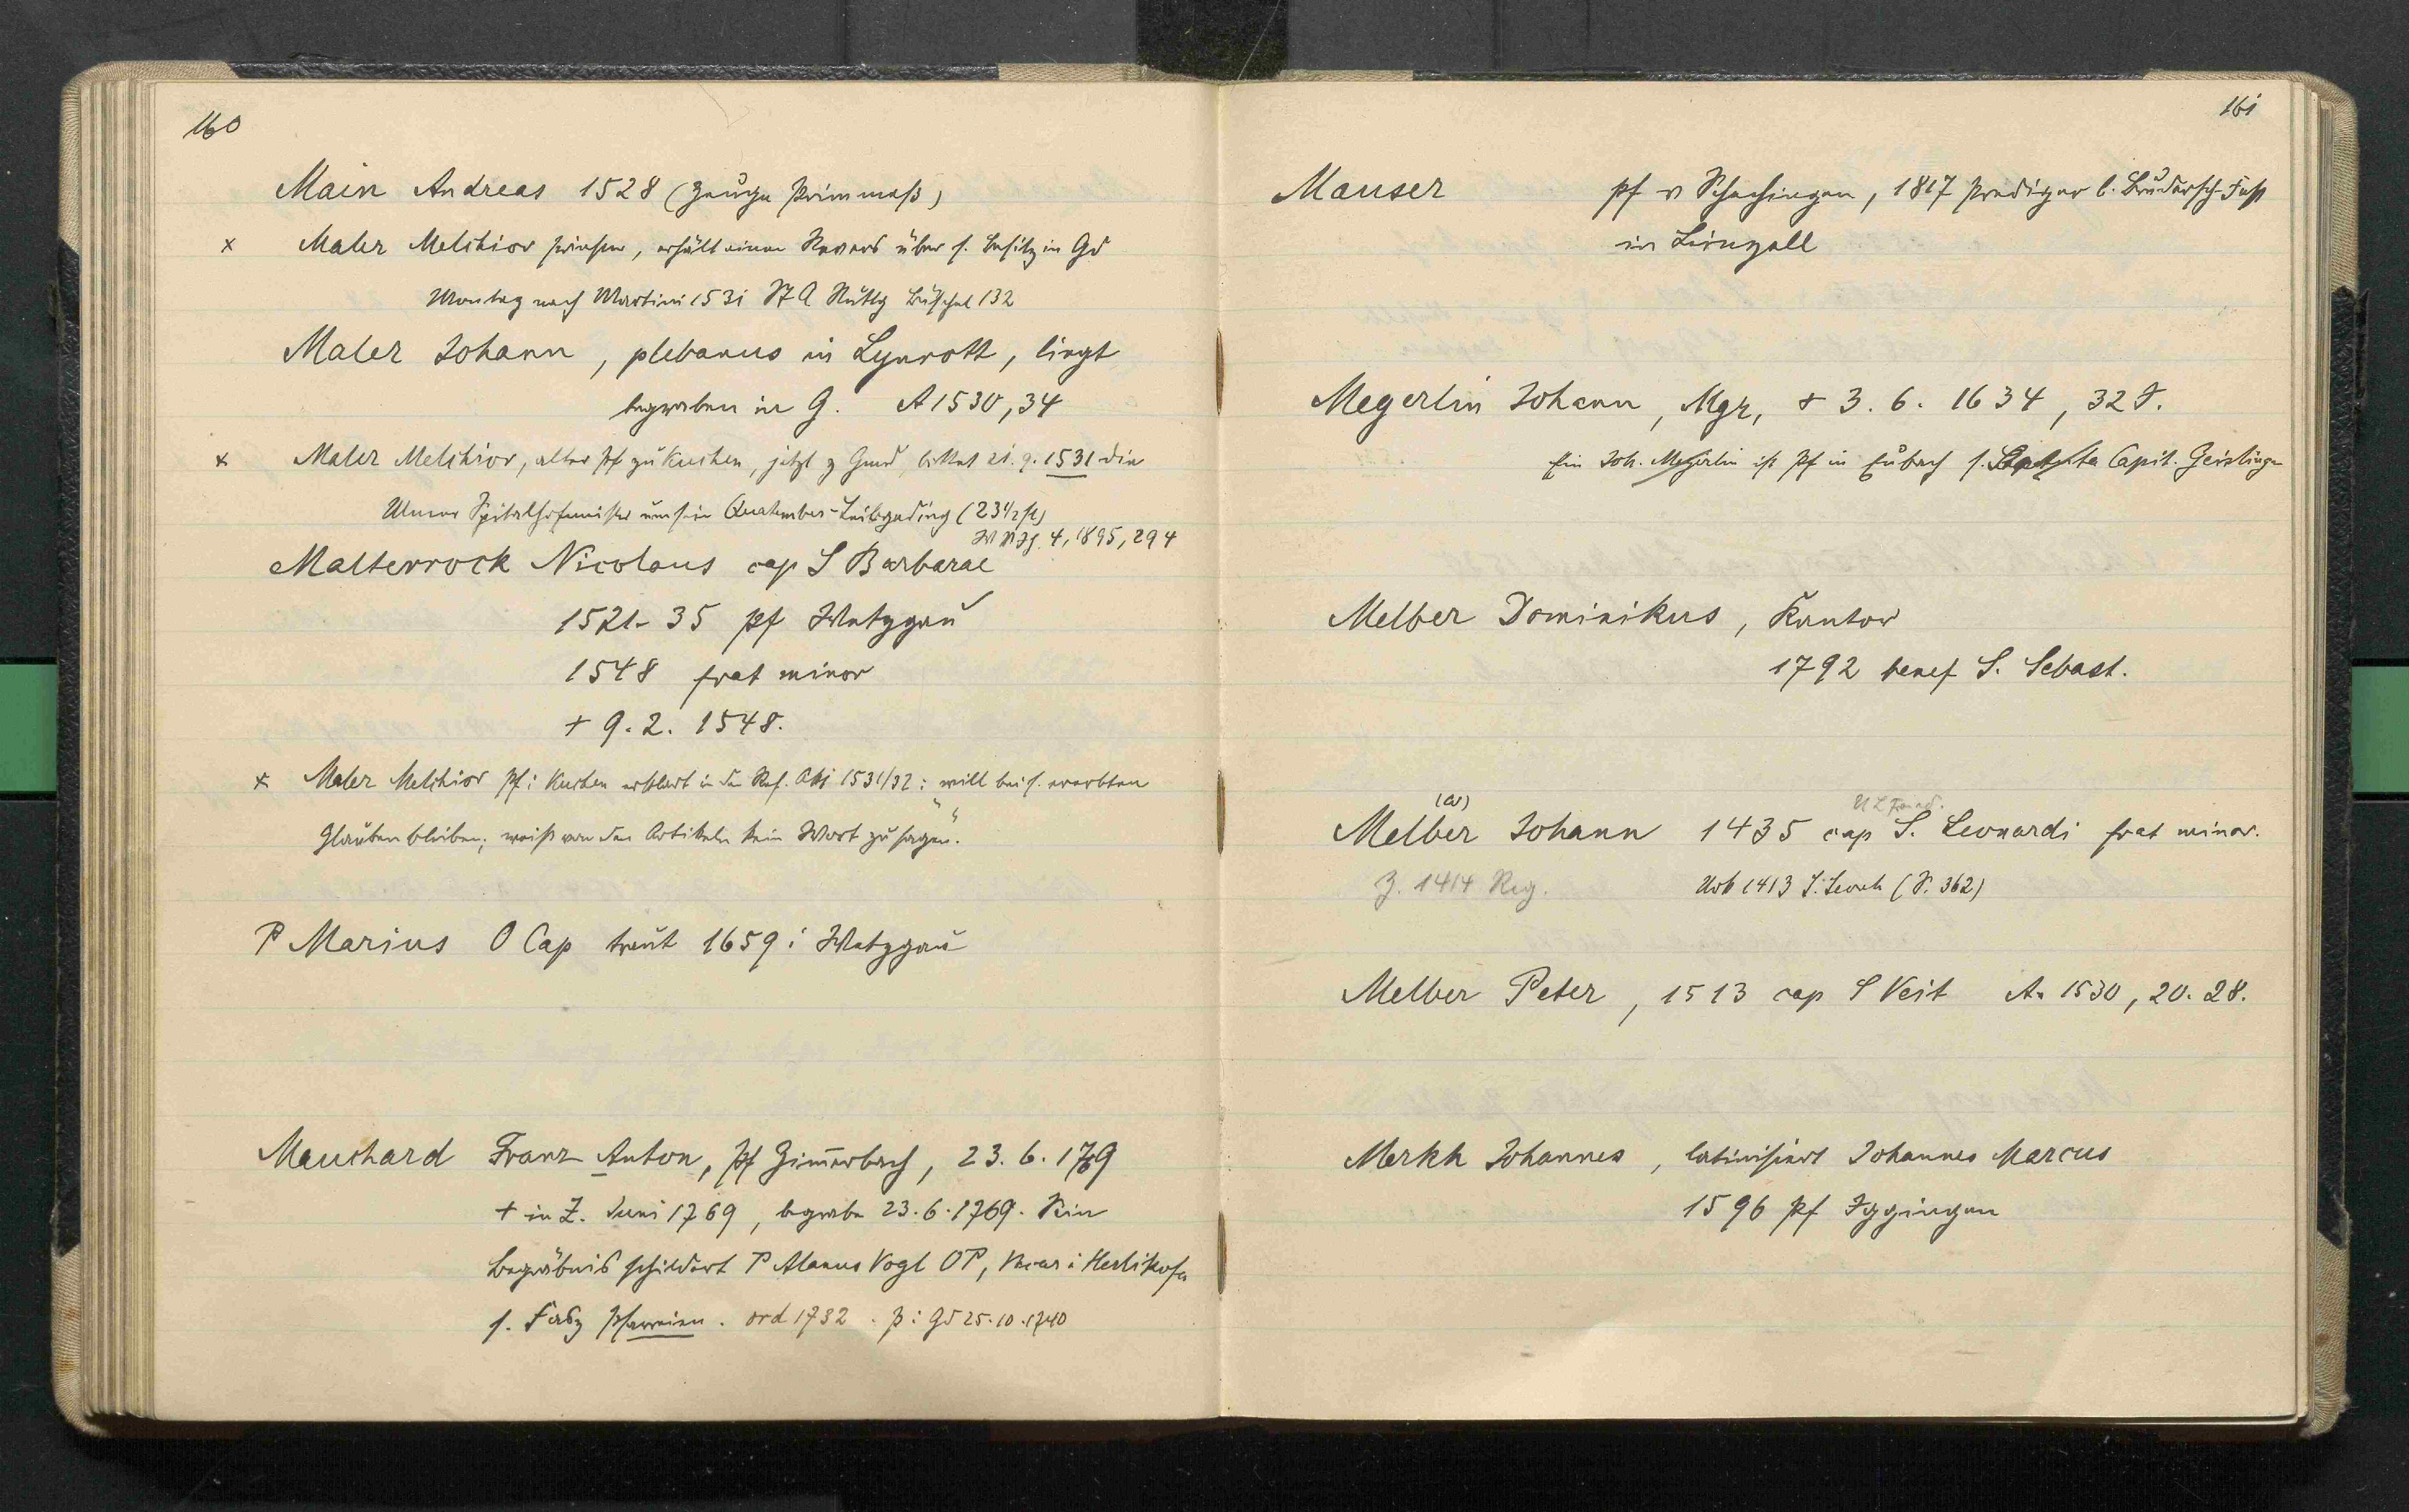 160
Main Andreas 1528 (Zeuge Primmeß)
x Maler Melchior Priester, erhält einen Revers über s. Besitz in Gd
Montag nach Martini 1531 StA Ndbg Büschel 132
Maler Johann, plebanus in Lynrott, liegt
begraben in G. A 1530, 34
x Maler Melchior, alter Pf zu Kuchen, jetzt z Gmd, bittet 21. 9. 1531 die
Ulmer Spitalhofmeister um sein Quatember-Leibgeding (23 1/2 fl)
W Vjh. 4, 1895, 294
Malterrock Nicolaus cap S Barbarae
1521-35 Pf Wetzgau
1548 frat minor
+ 9. 2. 1548.
x Maler Melchior Pf i Kuchen erklärt in den Ref. Akt 1531/32: will bei s. ererbten
Glauben bleiben; weiß von den Artikeln "kein Wort zu sagen".
P Marius O Cap traut 1659 i Wetzgau
Mauchard Franz Anton, Pf Zimmerbach, 23. 6. 1769
+ in Z. Juni 1769, begrabe 23. 6. 1769. Sein
Begräbnis schildert P Alanus Vogl OP, Vicar i Herlikofe
s. Fasz Pfarreien. ord 1732. P i Gd 25. 10. 1740
161
Mauser Pf v Schechingen, 1817 Prediger b. Brudersch-Fest
in Leinzell
Megerlin Johann, Mgr, + 3. 6. 1634, 32 J.
Ein Joh. Megerlin ist Pf in Eubach s. Capit. Geislinge
Melber Dominikus, Kantor
1792 benef S. Sebast.
(a)
Melber Johann 1435 cap S. Leonardi frat minor.
Z. 1414 Reg. Urb 1413 S. Leonh (S. 362)
Melber Peter, 1513 cap S Veit A. 1530, 20. 28.
Merkh Johannes, latinisiert Johannes Marcus
1596 Pf Iggingen